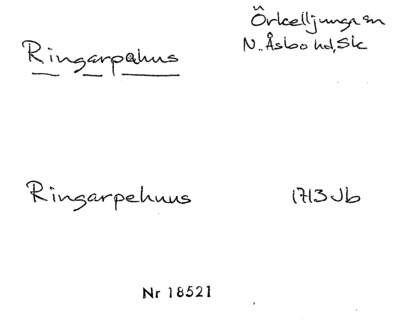 Örkelljunga sn
Ringarpahus
N. Åsbo hd, Sk
Ringarpehuus
1713 Jb
Nr 18521